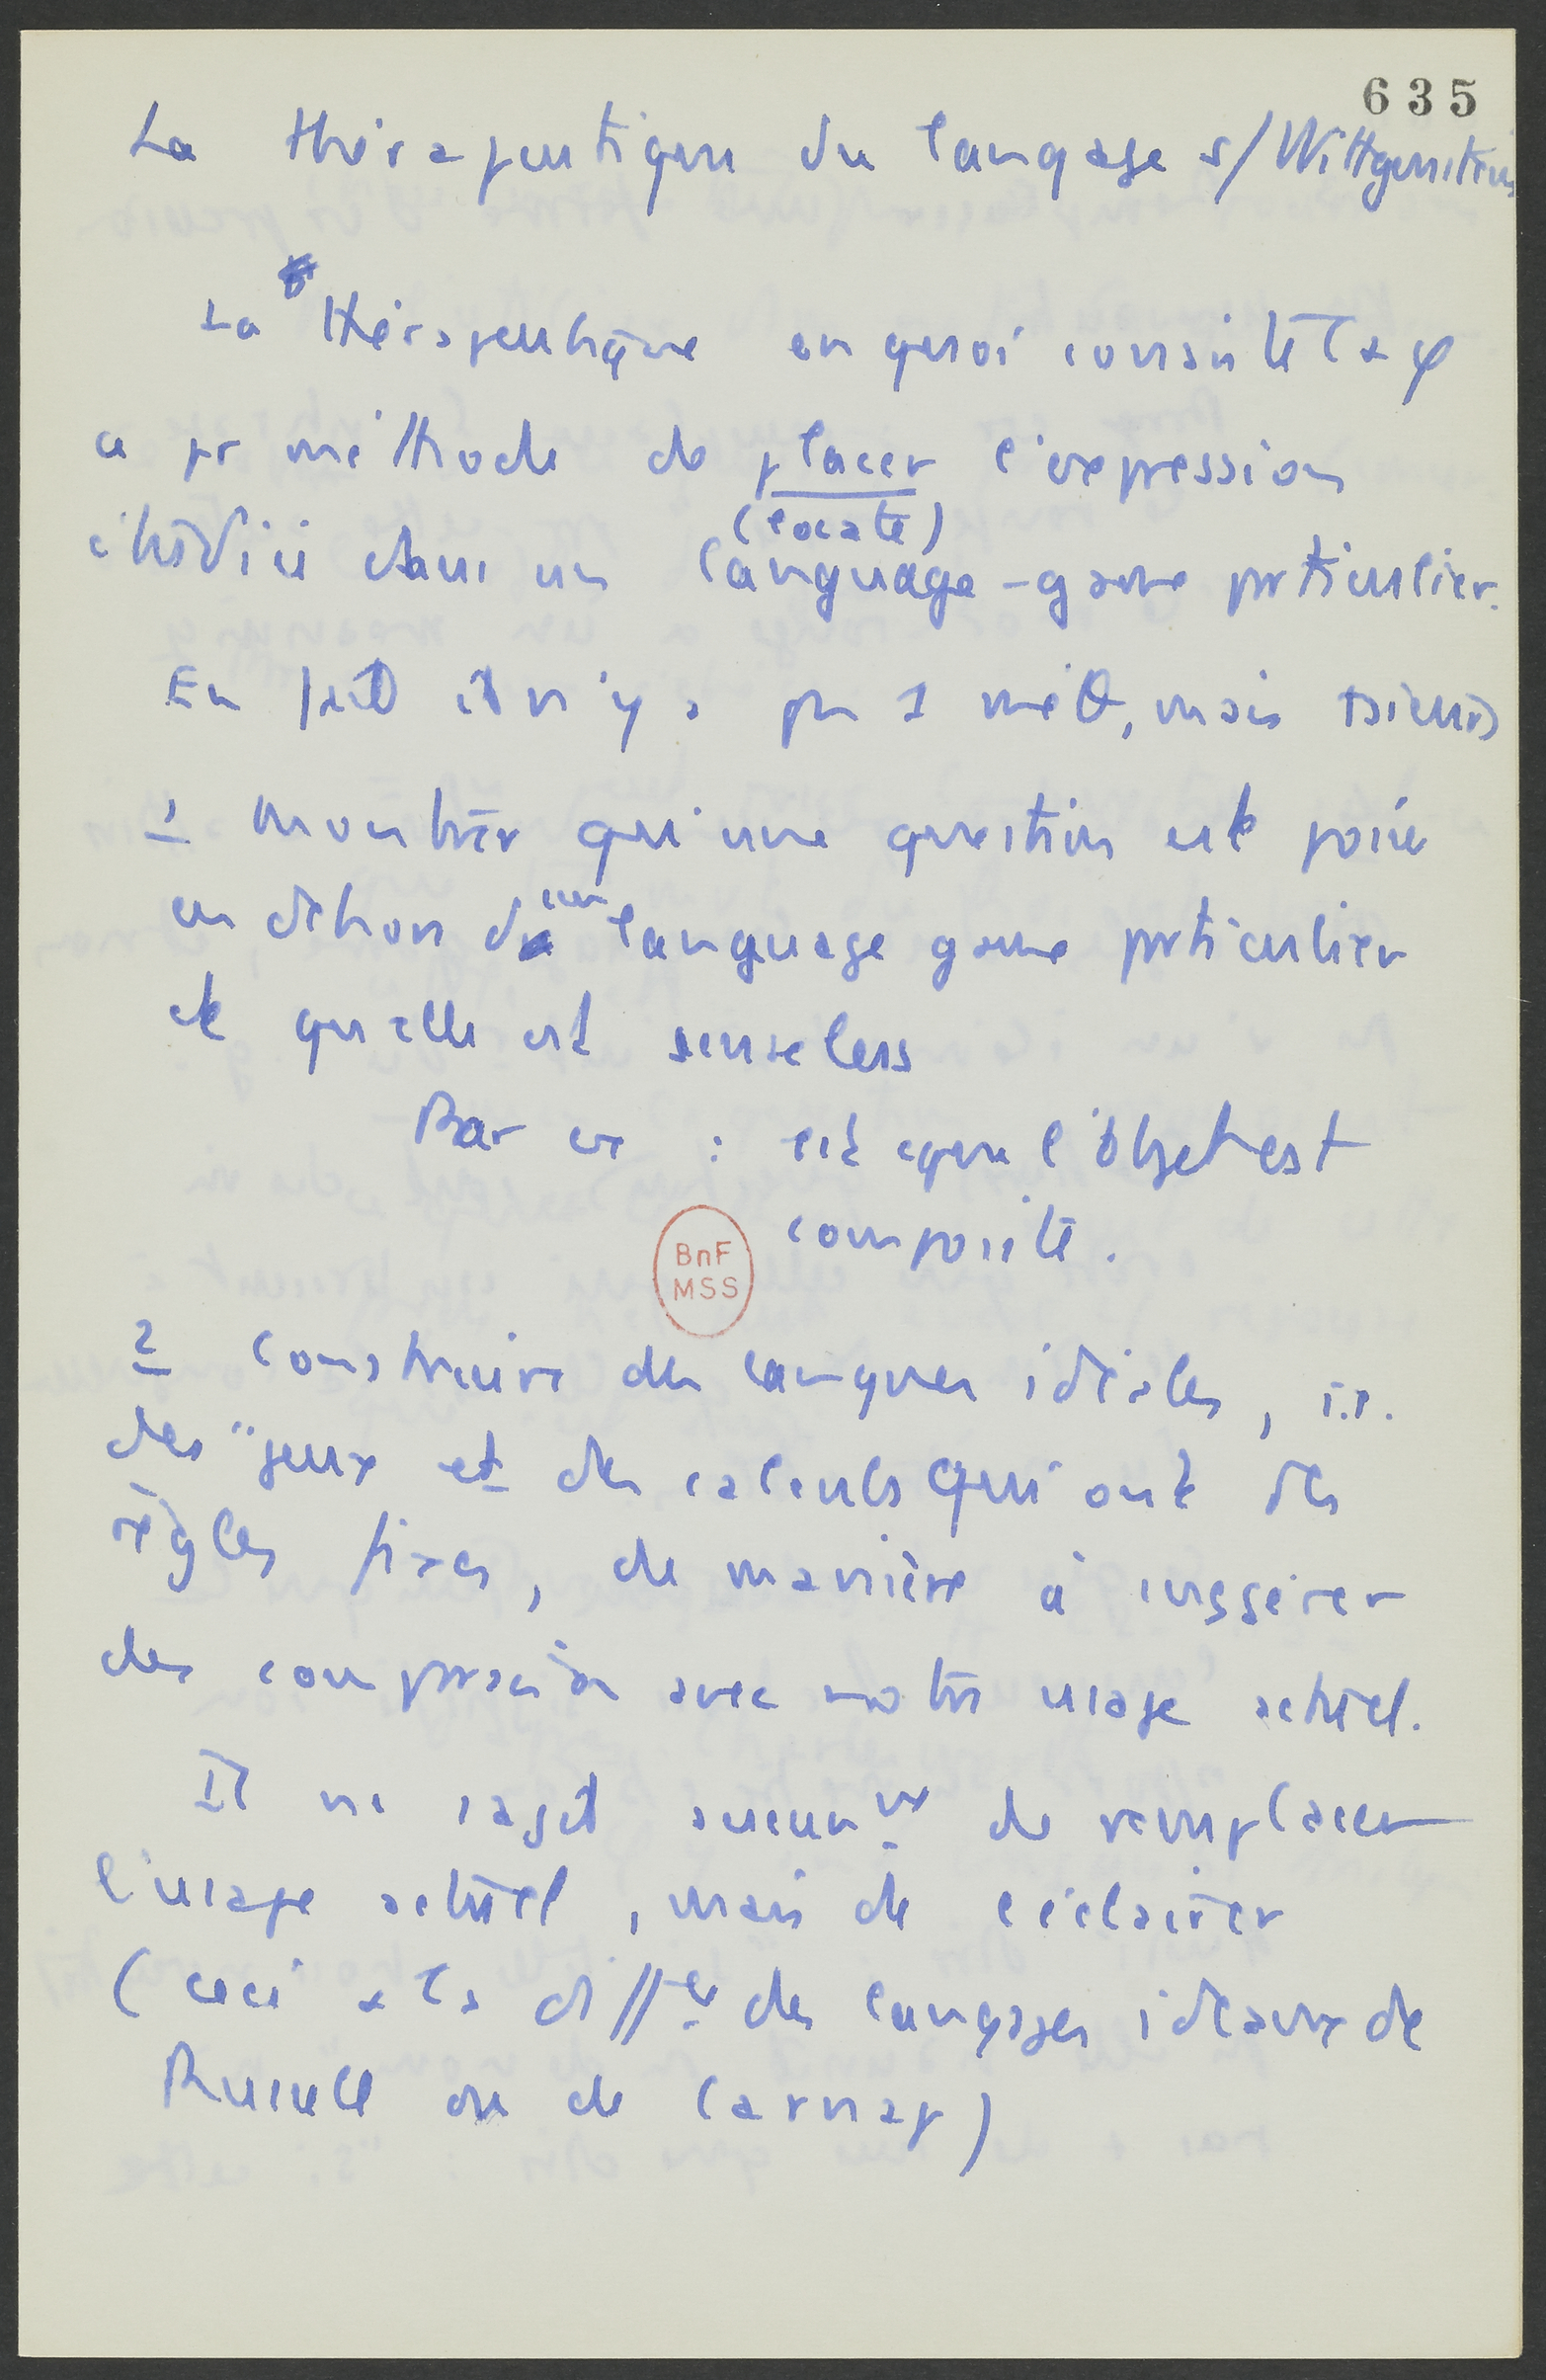 635
La thérapeutique du langage s/Wittgenstein
La thérapeutique en quoi consiste la φ
a pr méthode de placer l'expression
(locate)
étudiée dans un language-game particulier.
En fait il n'y a pas 1 méθ, mais
1 Montrer qu'une question est posée
en dehors d'un language game particulier
et qu'elle est senseless
Par ex : est ce que l'objet est
composite.
BnF
MSS
2 Construire des langues idéales, i.e.
des "jeux et des calculs qui ont des
règles fixes, de manière à suggérer
des comparaison avec notre usage actuel.
Il ne s'agit aucunnt de remplacer
l'usage actuel, mais de l'éclairer
(ceci à la diffce des langages idéaux de
Russell ou de Carnap)